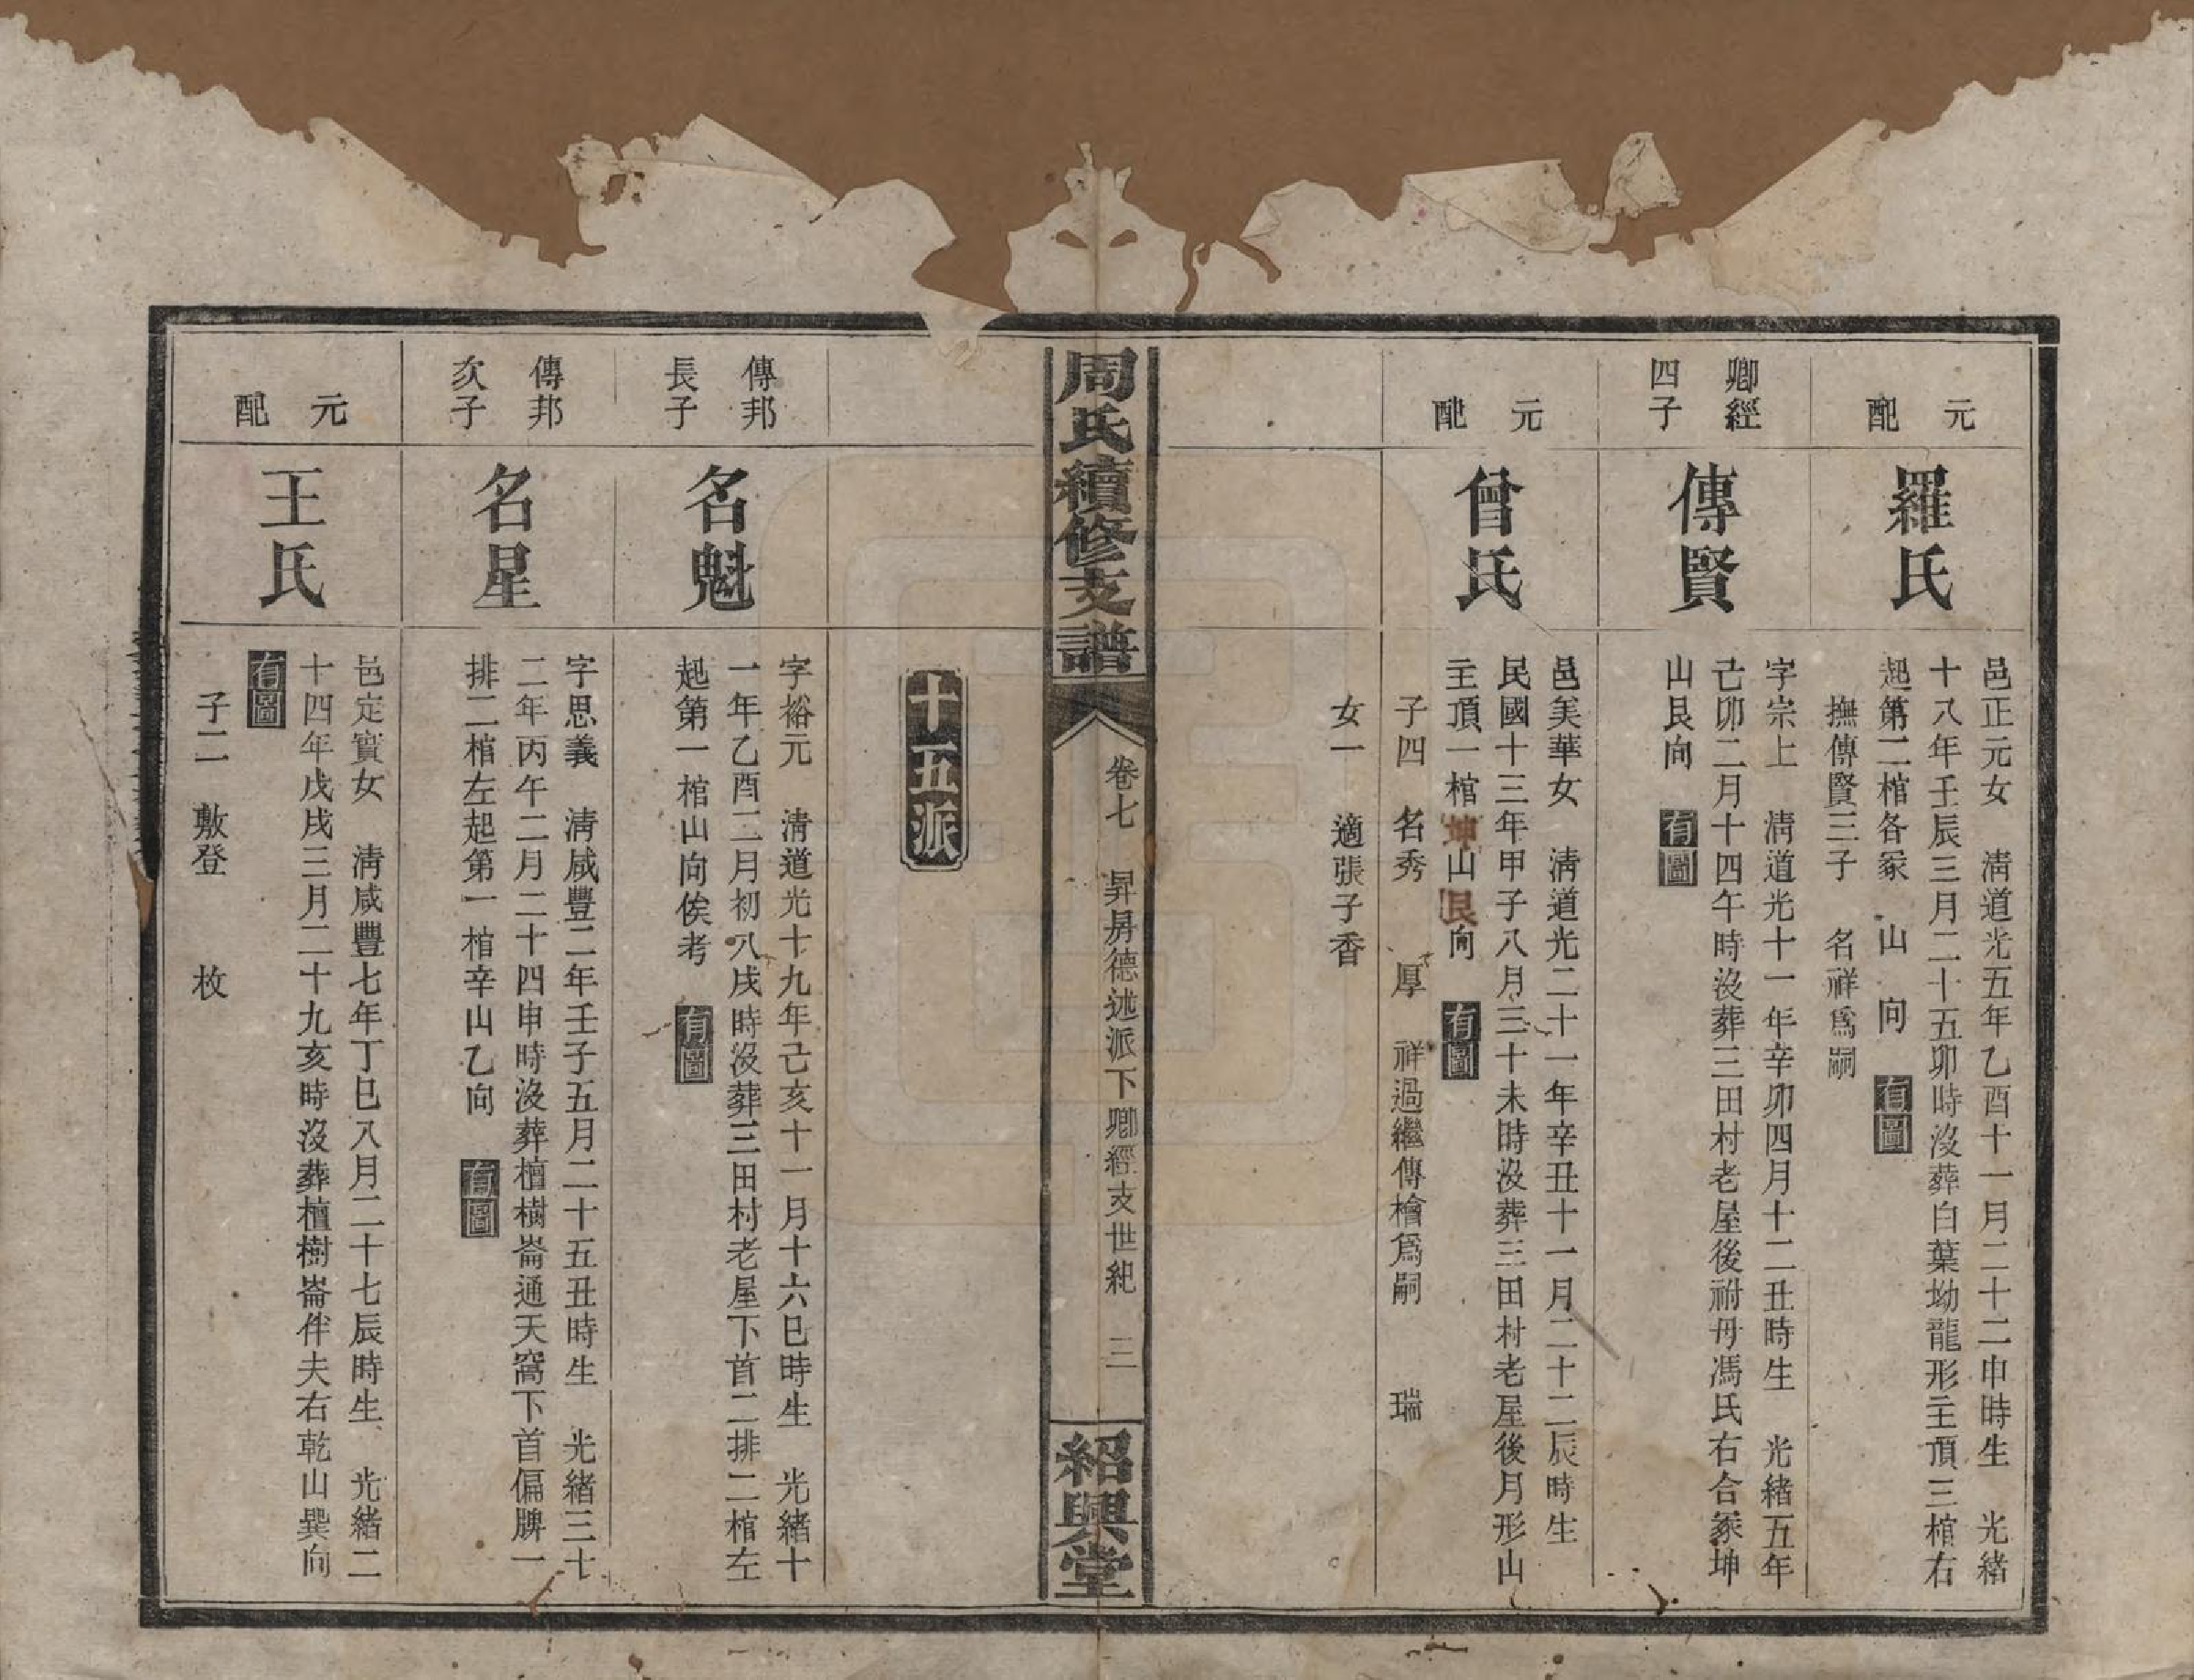 元配
羅氏
邑正元女　淸道光五年乙酉十一月二十二申時生　光緒
十八年壬辰三月二十五卯時沒葬白葉坳龍形主頂三棺右
起第二棺各冢　山　向　有圖
撫傳賢三子　名祥爲嗣
卿經
四子
傳賢
字宗上　淸道光十一年辛卯四月十二丑時生　光緒五年
己卯二月十四午時沒葬三田村老屋後祔母馮氏右合冢坤
山艮向　有圖
元配
曾氏
邑美華女　淸道光二十一年辛丑十一月二十二辰時生
民國十三年甲子八月三十未時沒葬三田村老屋後月形山
主頂一棺坤山艮向　有圖
子四　名秀　厚　祥過繼傳檜爲嗣　瑞
女一　適張子香
周氏續修支譜
卷七　昇房德述派下卿經支世紀　三
紹興堂
十五派
傳邦
長子
名魁
字裕元　淸道光十九年己亥十一月十六巳時生　光緒十
一年乙酉二月初八戌時沒葬三田村老屋下首二排二棺左
起第一棺山向俟考　有圖
傳邦
次子
名星
字思義　淸咸豐二年壬子五月二十五丑時生　光緒三十
二年丙午二月二十四申時沒葬檀樹崙通天窩下首偏牌一
排二棺左起第一棺辛山乙向　有圖
元配
王氏
邑定賓女　淸咸豐七年丁巳八月二十七辰時生　光緒二
十四年戊戌三月二十九亥時沒葬檀樹崙伴夫右乾山巽向
有圖
子二　敷登　枚